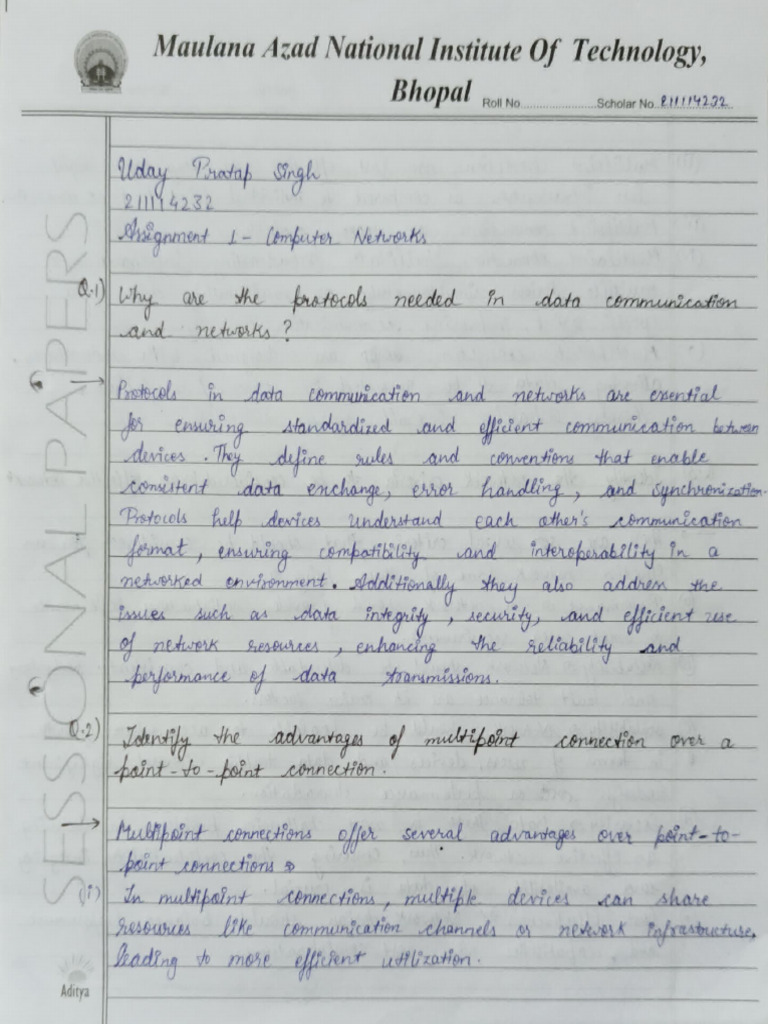 Maulana Azad National Institute Of Technology,
Bhopal
Roll No.......................Scholar No. 211114232
Uday Pratap Singh
211114232
Assignment 1 - Computer Networks
Q.1) Why are the protocols needed in data communication
and networks ?
→ Protocols in data communication and networks are essential
for ensuring standardized and efficient communication between
devices. They define rules and conventions that enable
consistent data exchange, error handling, and synchronization.
Protocols help devices understand each other's communication
format, ensuring compatibility and interoperability in a
networked environment. Additionally they also address the
issues such as data integrity, security, and efficient use
of network resources, enhancing the reliability and
performance of data transmissions.
Q.2) Identify the advantages of multipoint connection over a
point-to-point connection.
→ Multipoint connections offer several advantages over point-to-
point connections
(i) In multipoint connections, multiple devices can share
resources like communication channels or network infrastructure,
leading to more efficient utilization.
SESSIONAL PAPERS
Aditya